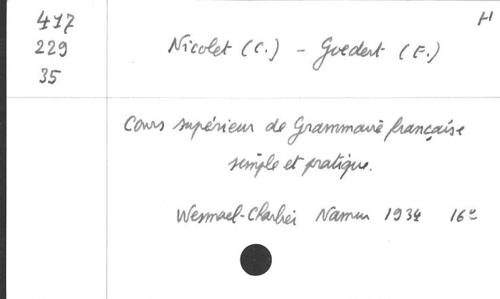 417
H
229
Nicolet (C.) - Goedert (E.)
35
Cours supérieur de Grammaire française
simple et pratique.
Wesmael-Charlier Namur 1934 16º